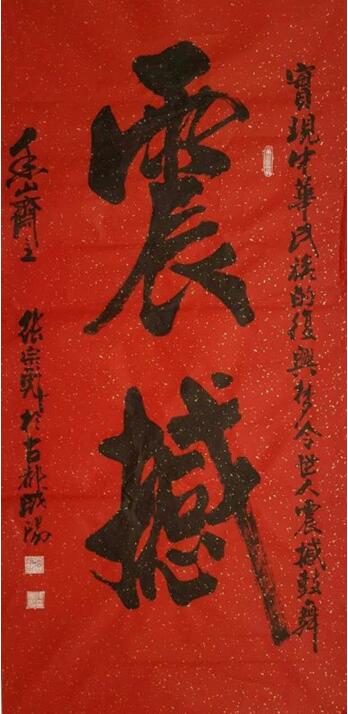 實現中華民族的復興梦令世人震撼鼓舞
震撼
山齊主
張宗戰於古都咸陽